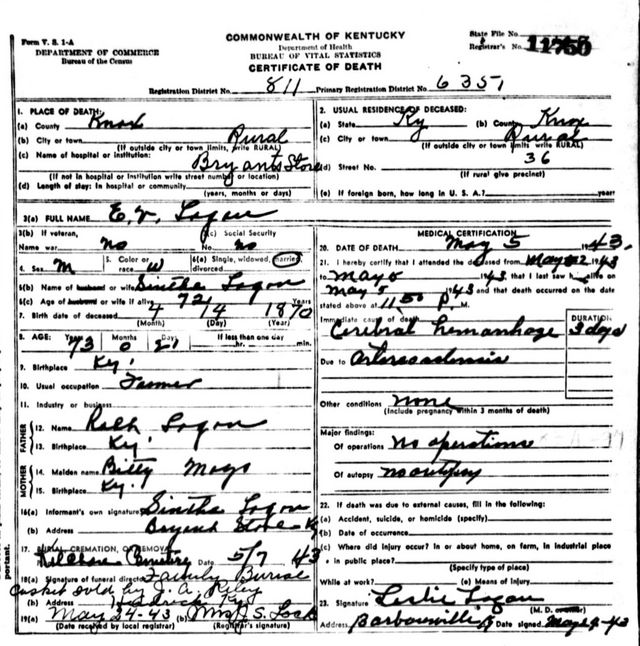 Form V. S. 1-A
DEPARTMENT OF COMMERCE
Bureau of the Census
COMMONWEALTH OF KENTUCKY
Department of Health
BUREAU OF VITAL STATISTICS
CERTIFICATE OF DEATH
State File No.
Registrar's No.
Registration District No. 811 Primary Registration District No. 6351
1. PLACE OF DEATH:
(a) County Knox
(b) City or town Rural
(If outside city or town limits, write RURAL)
(c) Name of hospital or institution:
Bryants Store
(If not in hospital or institution write street number or location)
(d) Length of stay: In hospital or community
(years, months or days)
2. USUAL RESIDENCE OF DECEASED:
(a) State Ky (b) County Knox
(c) City or town Rural
(If outside city or town limits write RURAL)
(d) Street No. 36
(If rural give precinct)
(e) If foreign born, how long in U. S. A.? years
3(a) FULL NAME E. V. Logan
3(b) If veteran, (c) Social Security
Name war no No. no
4. Sex M 5. Color or race W 6(a) Single, widowed, married, divorced
6(b) Name of husband or wife Sintha Logan
6(c) Age of husband or wife if alive 72 Years
7. Birth date of deceased 4 14 1870
(Month) (Day) (Year)
8. AGE: Years 73 Months 0 Days 21 If less than one day
hr. min.
9. Birthplace Ky.
10. Usual occupation Farmer
11. Industry or business
FATHER
12. Name Logan
13. Birthplace Ky.
MOTHER
14. Maiden name Bitty Mays
15. Birthplace Ky.
16(a) Informant's own signature Sintha Logan
(b) Address Bryant Store Ky
17. BURIAL, CREMATION, OR REMOVAL
Cemetery Date 5/7 43
18(a) Signature of funeral director Family Burial
Casket sold by J. A. Riley
(b) Address
19(a) May 29-43 (b) Mrs J. S. Lock
(Date received by local registrar) (Registrar's signature)
MEDICAL CERTIFICATION
20. DATE OF DEATH May 5 1943.
21. I hereby certify that I attended the deceased from May 2 1943
to May 5 1943, that I last saw h alive on
May 5 1943 and that death occurred on the date
stated above at 11 50 P. M.
Immediate cause of death DURATION
Cerebral hemanhage 3 days
Due to
Other conditions none
(Include pregnancy within 3 months of death)
Major findings:
Of operations no operations
Of autopsy no autopsy
22. If death was due to external causes, fill in the following:
(a) Accident, suicide, or homicide (specify)
(b) Date of occurrence
(c) Where did injury occur? In or about home, on farm, in industrial place
in public place?
(Specify type of place)
While at work? (e) Means of Injury
23. Signature Leslie Logan
(M. D. or other)
Address Barbourville Ky Date signed
portant.